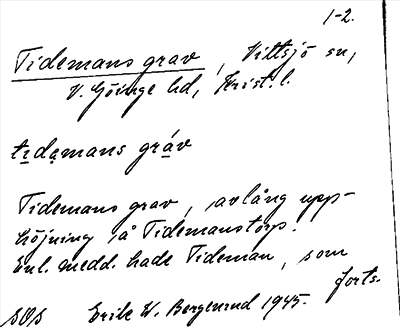 1-2.
Tidemans grav, Vittsjö sn,
V. Göinge hd, Krist. l.
tidamans gráv
Tidemans grav, avlång upp-
höjning å Tidemanstorp.
Enl. medd. hade Tideman, som
forts.
SOS Erik W. Bergenrud 1945.